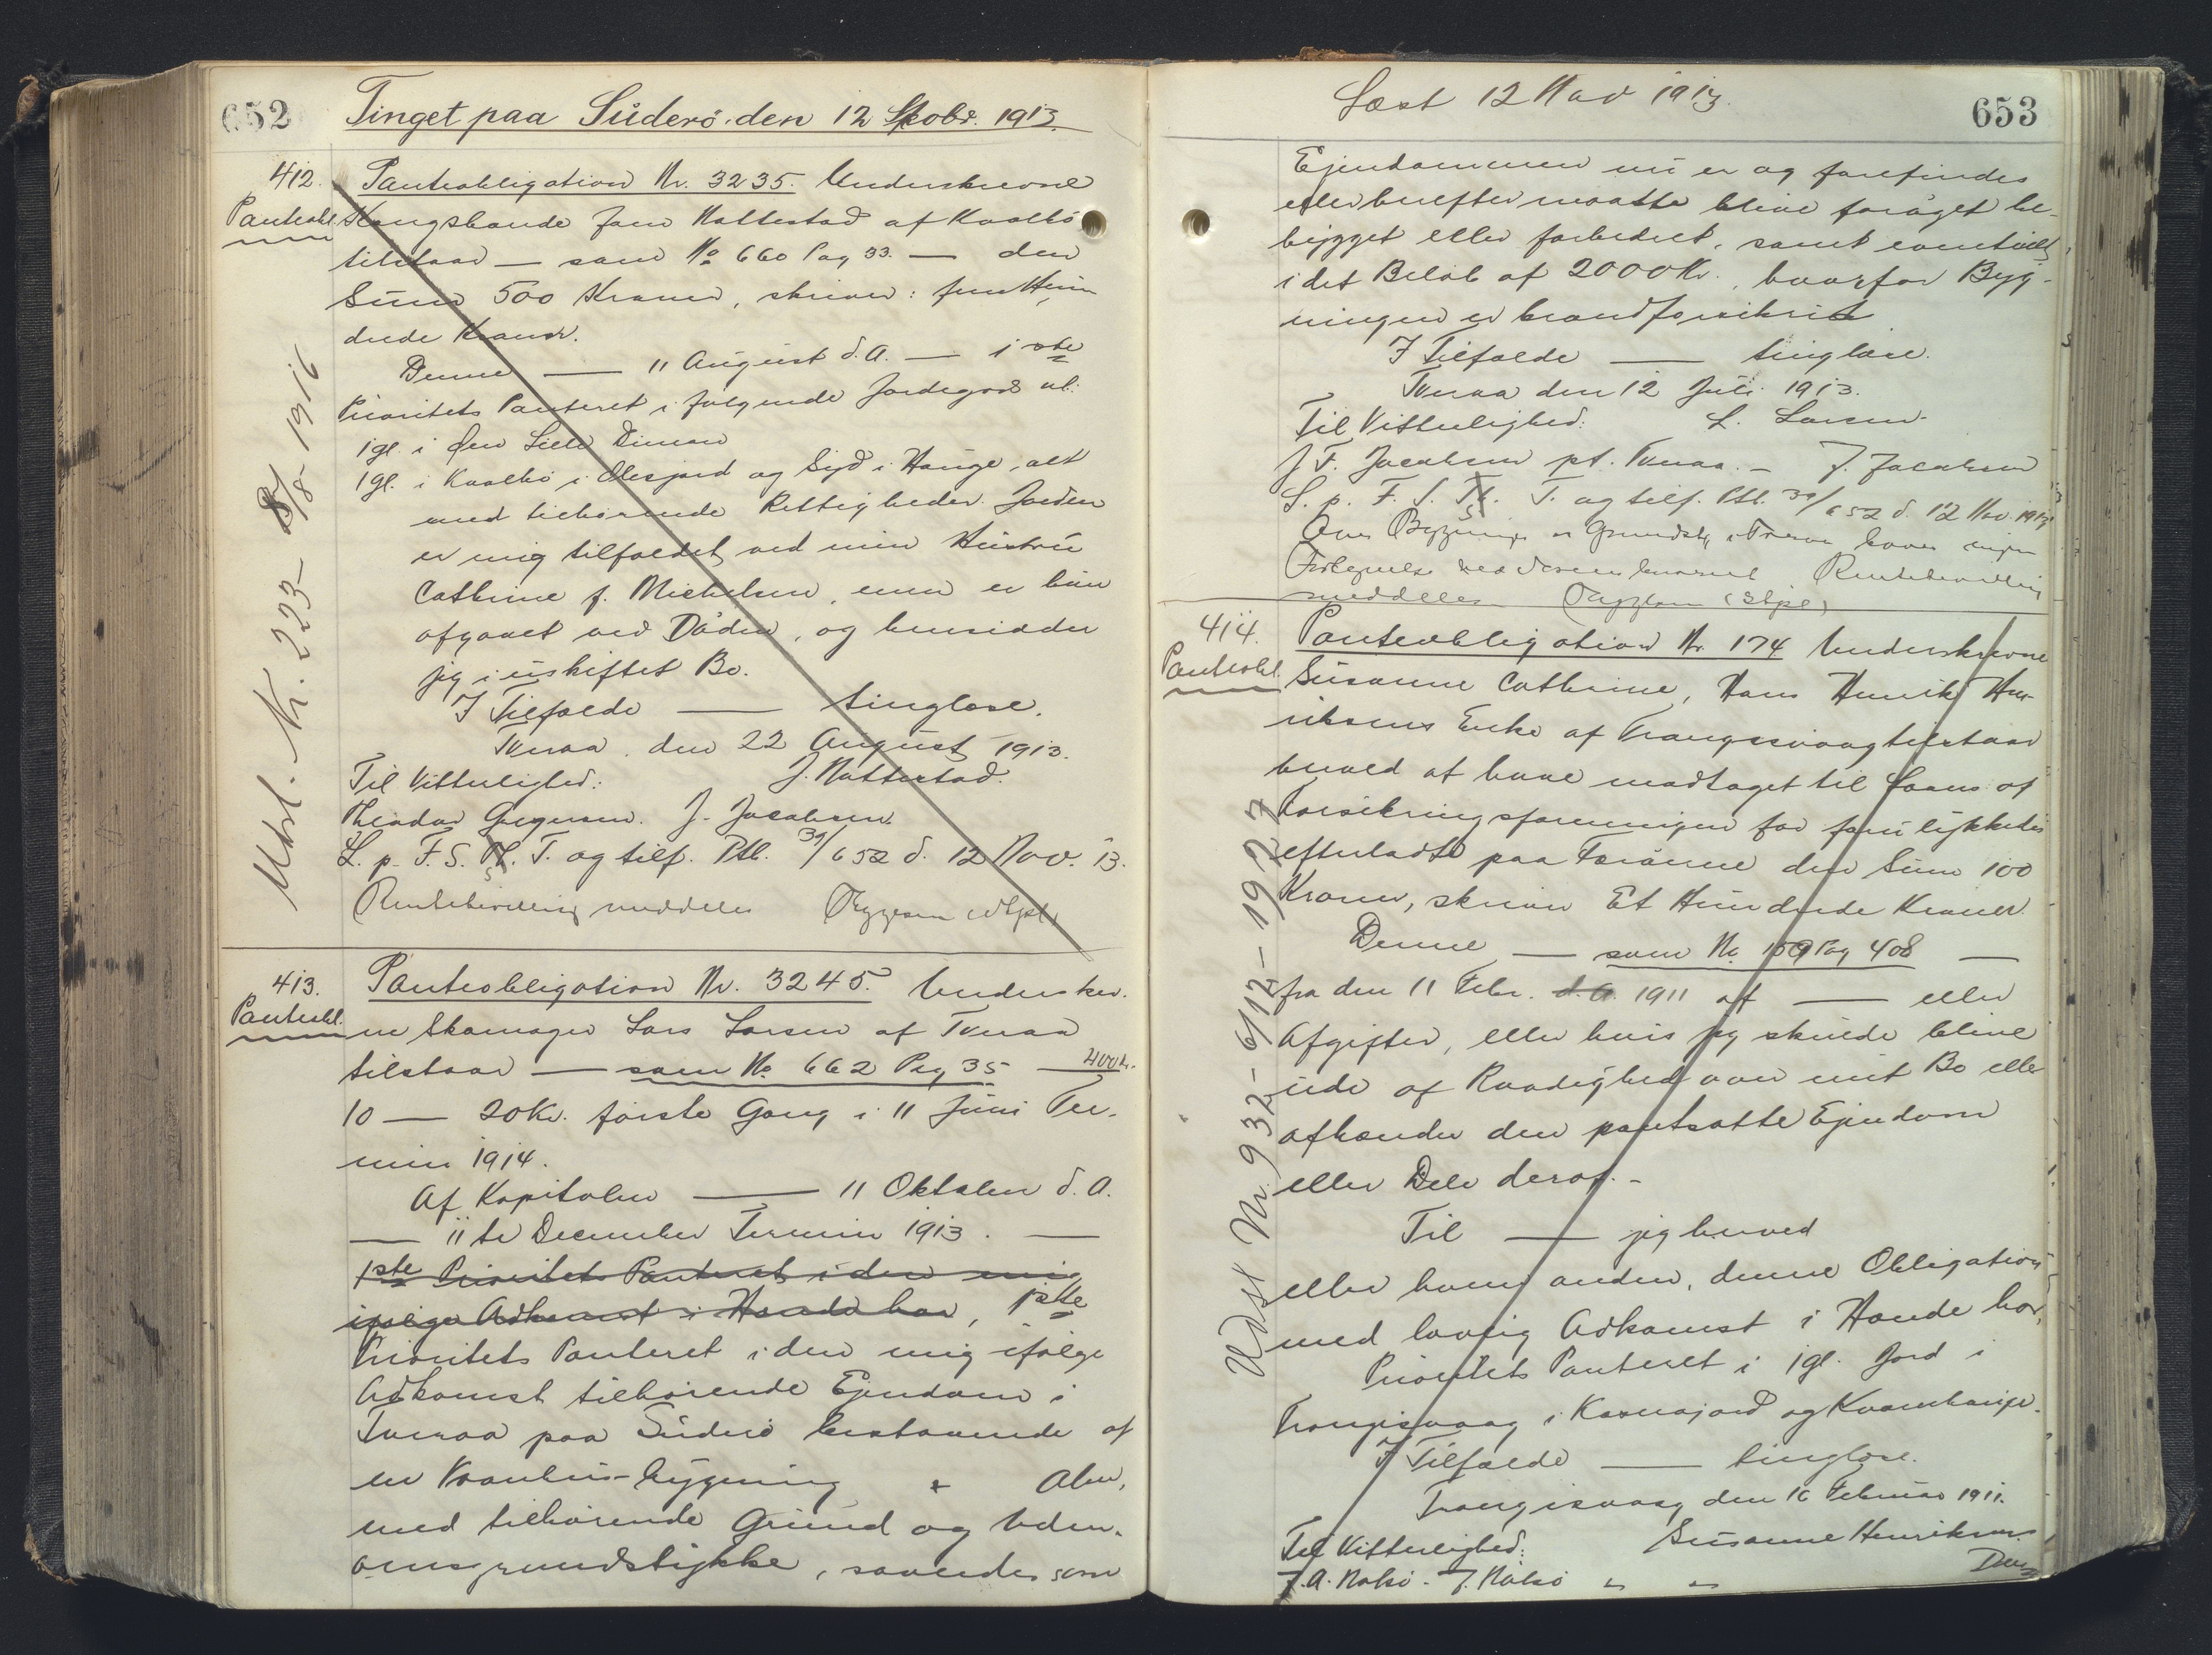 652
Tinget paa Süderö den 12 Novbr. 1913.
412. Panteobligation Nr. 3235. Underskrevne
Panteobl. Kongsbonde Joen Nattestad af Kvalbö
tilstaar — som No 660 Pag 33. — den
Süm 500 Kroner, skriver: fem Hün
drede Kroner.
Denne — 11 August d.A. — 1ste
Prioritets Panteret i følgende Jordegods nl:
1gl. i Øen Lille Dimon
1gl. i Kvalbö i Olesjord og Syd i Hauge, alt
med tilhörende Rettigheder. Jorden
er mig tilfaldet ved min Hüstrü
Cathrine f. Michelsen, men er hün
afgaaet ved Döden, og hensidder
jeg i üskiftet Bo.
I Tilfælde — tinglæse.
Tveraa, den 22 August 1913.
Til Vitterlighed: J. Nattestad.
Theodor Gregersen. J. Jacobsen.
L. p. F. S. T. og tilf. Ptl. 39/652 d. 12 Nov. 13.
Rentebevilling meddeles
Udsl. Nr. 223 - 8/8 - 1916
413. Panteobligation Nr. 3245. Underskrev-
Panteobl. ne Skomager Lars Larsen af Tveraa
tilstaar — som No 662 Pag 35 — 400 Kr.
10 — 20 Kr. første Gang i 11 Jüni Ter-
min 1914.
Af Kapitalen — 11 Oktober d.A.
— 11te December Termin 1913. —
1ste Prioritets Panteret i den mig
ifølge Adkomst i Hænde har, 1ste
Prioritets Panteret i den mig ifølge
Adkomst tilhørende Ejendom i
Tveraa paa Süderö bestaaende af
en Vaanhüs-bygning × Alen,
med tilhörende Gründ og Uden-
omsgrundstykke, saavidt som
Læst 12 Nov 1913.
653
Ejendommen nü er og forefindes
eller herefter maatte blive forøget be-
bygget eller forbedret, samt eventüelt
i det Beløb af 2000 Kr., hvorfor Byg-
ningen er brandforsikret
I Tilfælde — tinglæse.
Tveraa den 12 Jüli 1913.
Til Vitterlighed: L. Larsen.
J F. Jacobsen pt. Tveraa. — J. Jacobsen
L. p. F. S. T. og tilf. Ptl. 39/652 d. 12 Nov. 1913
Rentebevilling
meddeles
414. Panteobligation Nr. 174 Underskrevne
Panteobl. Süsanne Cathrine, Hans Henrik Hen-
riksens Enke af Trangisvaag tilstaar
herved at have modtaget til Laans af
Forsikringsforeningen for forülykkedes
efterladte paa Færöerne den Süm 100
Kroner, skriver Et Hündrede Kroner.
Denne — som No 159 Pag 408 —
fra den 11 Febr. d.A. 1911 af — eller
Afgifter, eller hvis jeg skülde blive
üde af Raadighed over mit Bo eller
afhænder den pantsatte Ejendom
eller Dele deraf.-
Til — jeg herved
eller hvem anden, denne Obligation
med lovlig Adkomst i Hænde har,
Prioritets Panteret i 1gl. Jord i
Trangisvaag i
I Tilfælde — tinglæse.
Trangisvaag den 16 Februar 1911.
Til Vitterlighed: Süsanne Henriksen.
J. A. Nolsö - J. Nolsö
Udsl Nr. 932 - 6/12 - 1927